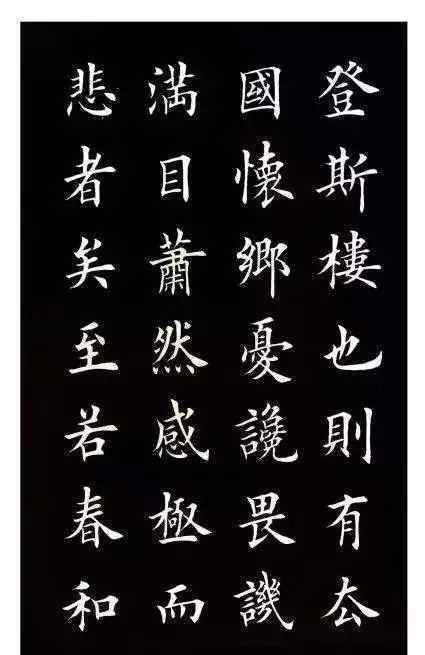 登斯樓也則有厺
國懷鄉憂讒畏譏
滿目蕭然感極而
悲者矣至若春和